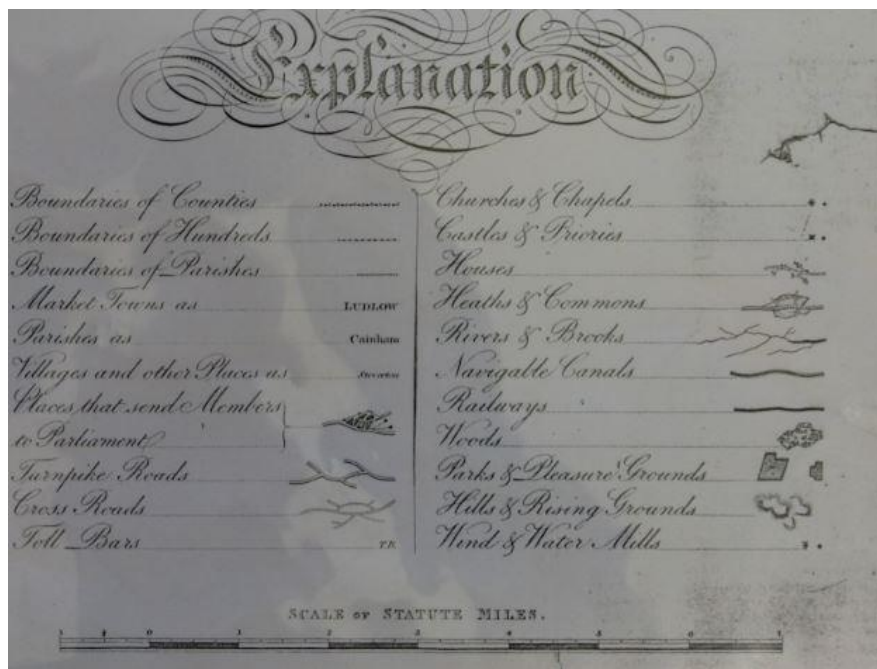 Explanation
Boundaries of Counties
Boundaries of Hundreds
Boundaries of Parishes
Market Towns as LUDLOW
Parishes as Cainham
Villages and other Places as
Places that send Members
to Parliament
Turnpike Roads
Cross Roads
Toll Bars T.B.
Churches & Chapels
Castles & Priories
Houses
Heaths & Commons
Rivers & Brooks
Navigable Canals
Railways
Woods
Parks & Pleasure Grounds
Hills & Rising Grounds
Wind & Water Mills
SCALE OF STATUTE MILES.